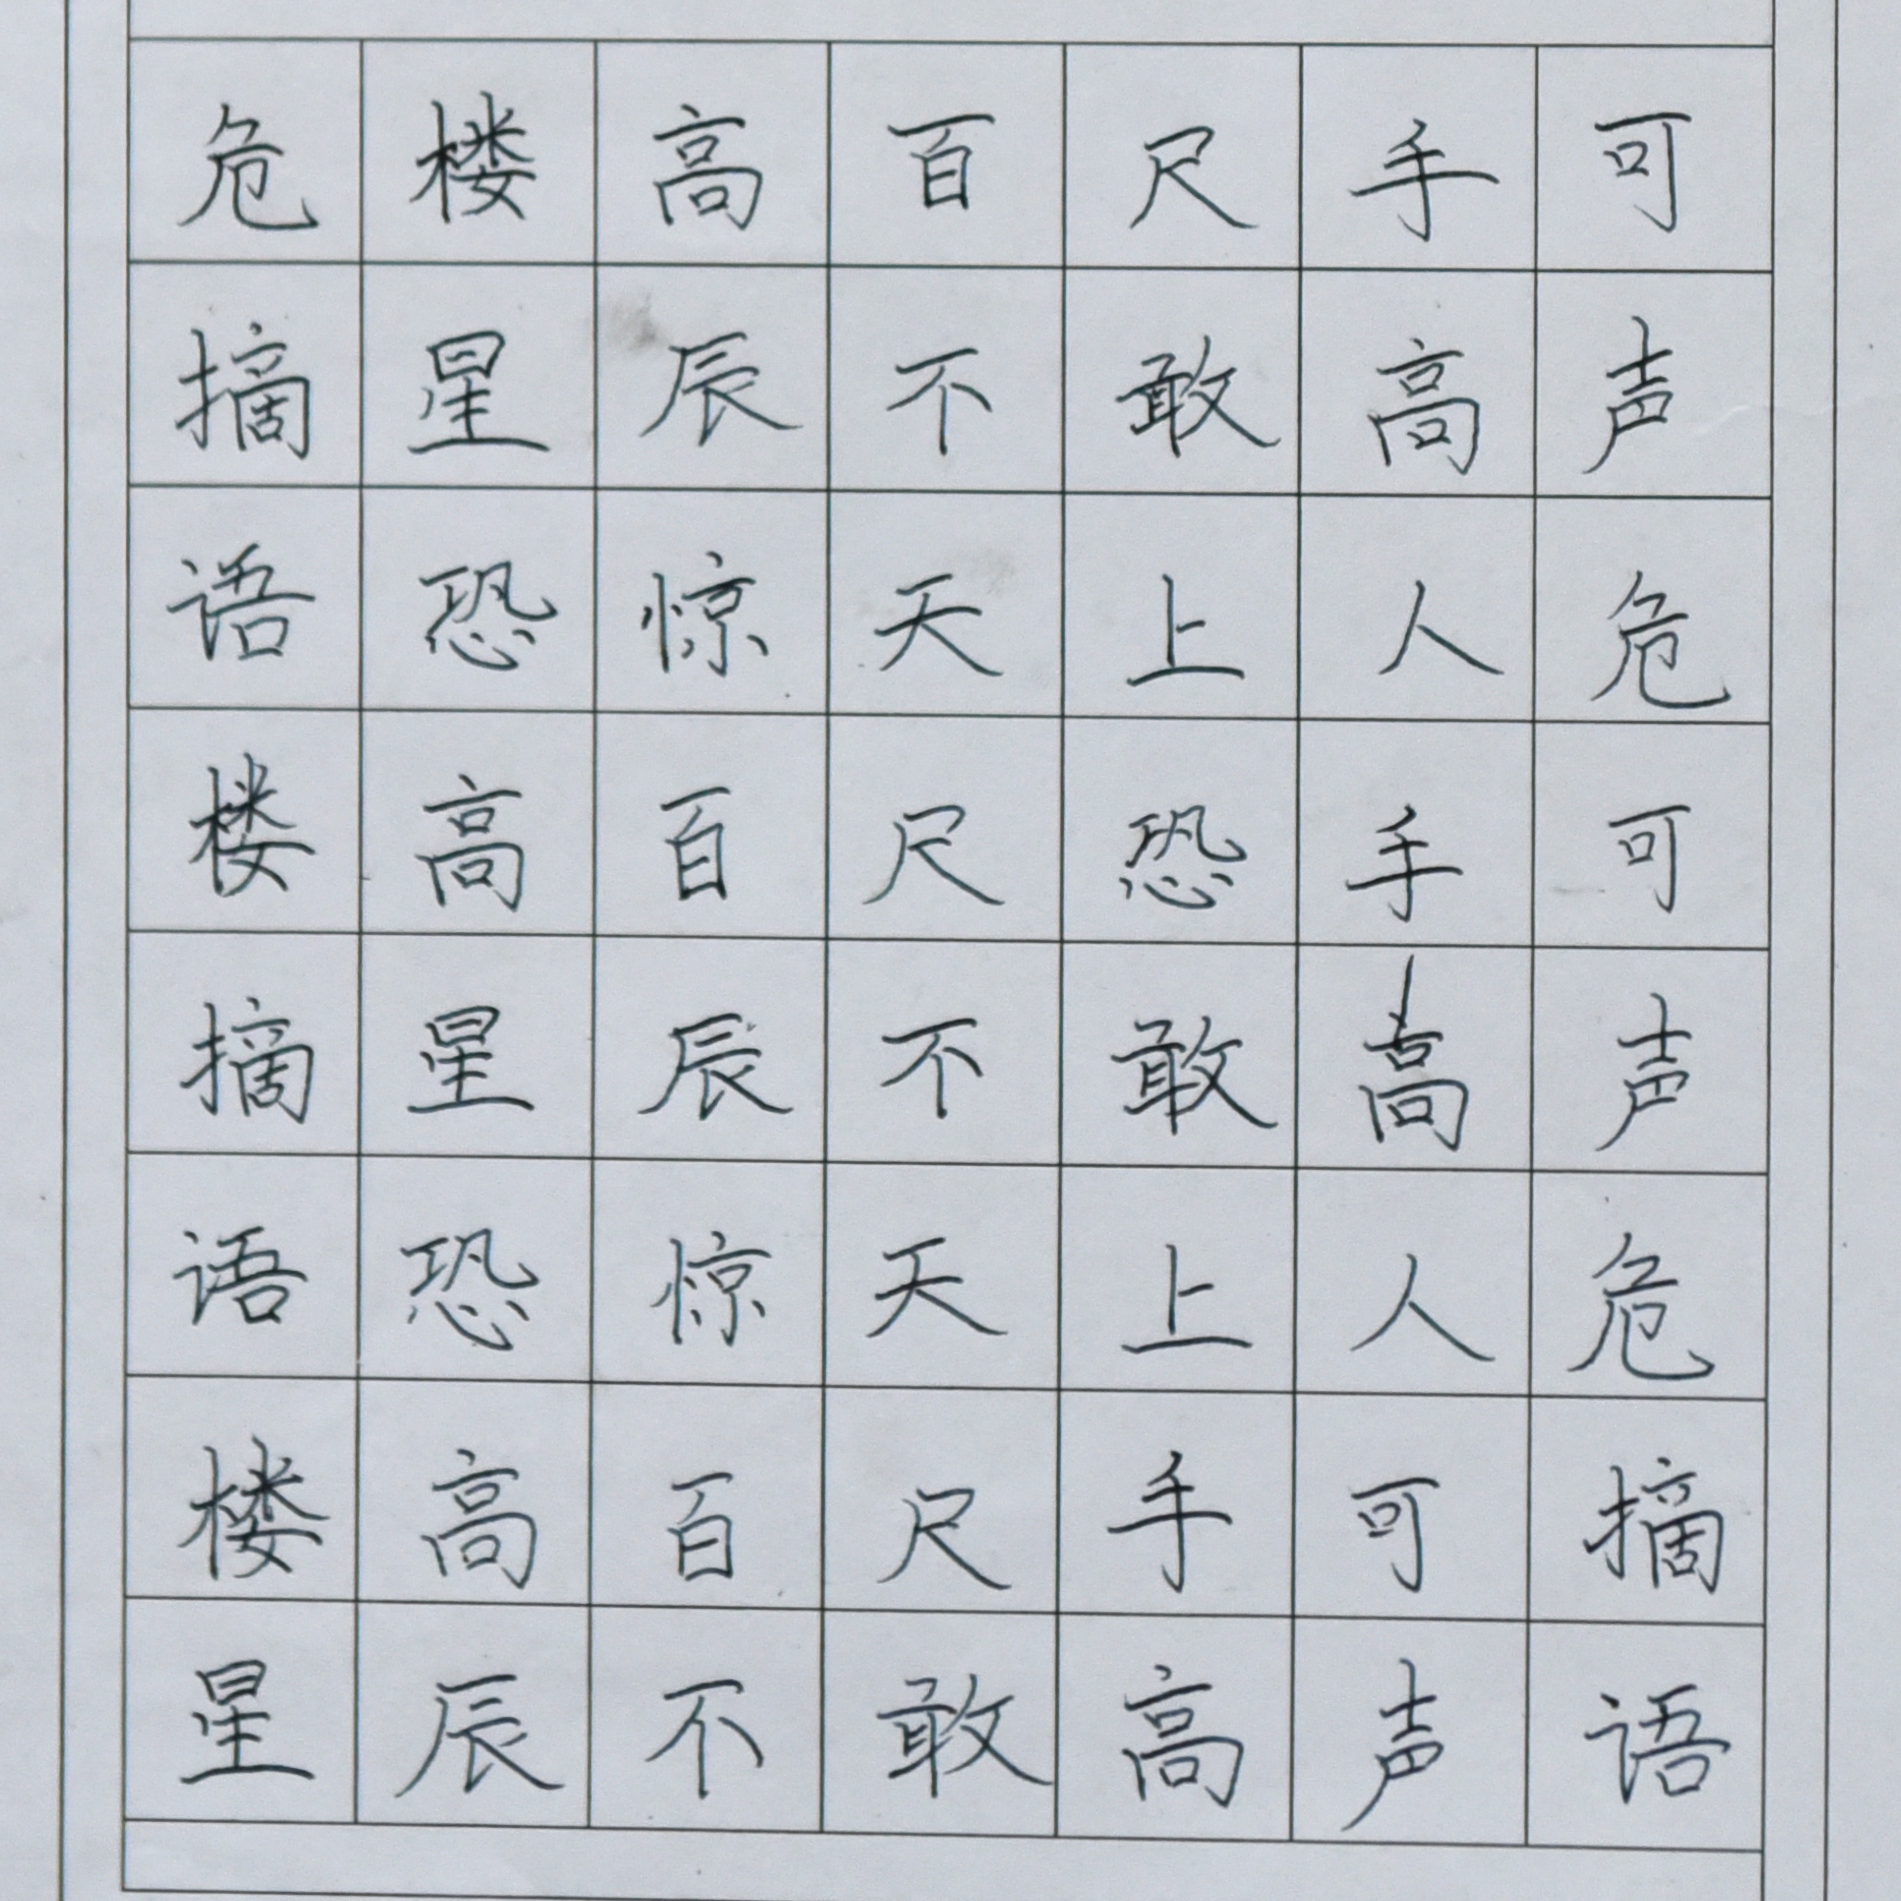 危楼高百尺手可
摘星辰不敢高声
语恐惊天上人危
楼高百尺恐手可
摘星辰不敢高声
语恐惊天上人危
楼高百尺手可摘
星辰不敢高声语